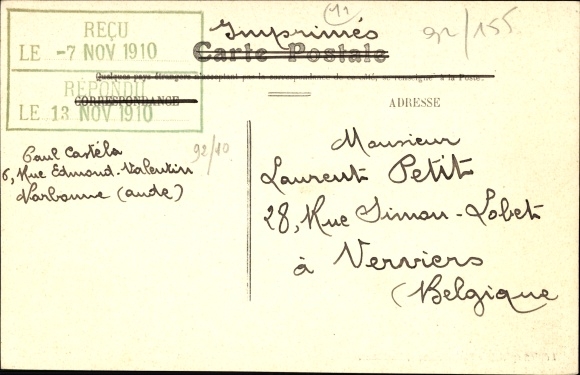 REÇU
LE -7 NOV 1910
RÉPONDU
LE 13 NOV 1910
11
Imprimés
92/155
Carte Postale
Quelques pays étrangers n'acceptant pas la correspondance de ce côté, se renseigner à la Poste.
CORRESPONDANCE
ADRESSE
92/10
Paul Castéla
6, Rue Edmond-Valentin
Narbonne (aude)
Monsieur
Laurent Petit
28, Rue Simon-Lobet
à Verviers
(Belgique